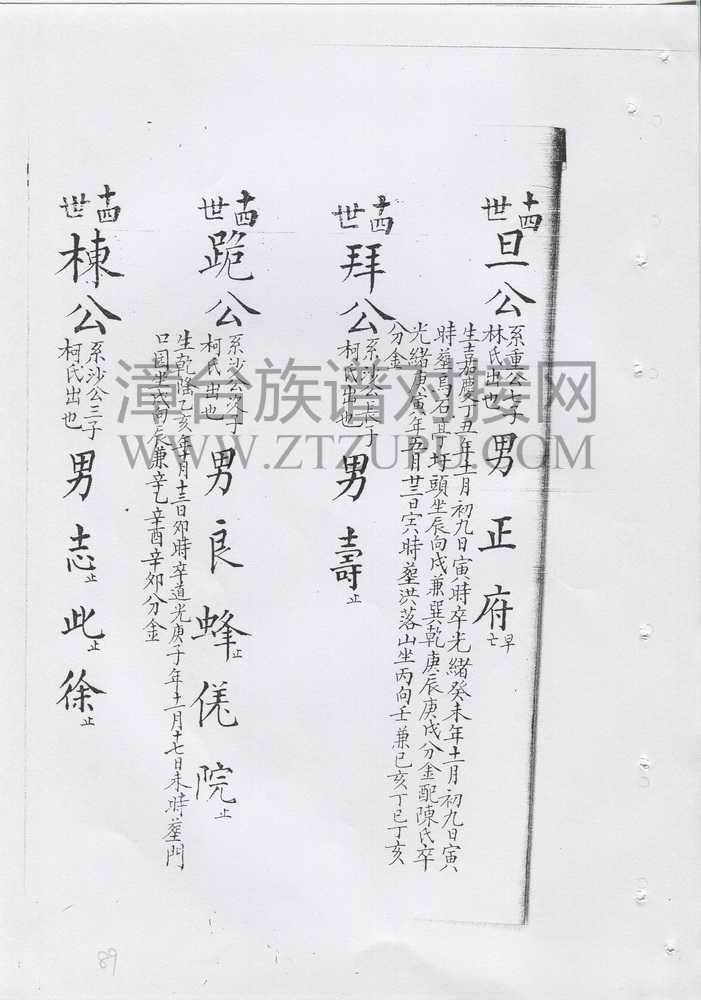 十四世
旦公
系重公七子
林氏出也
男正府
早亡
生嘉慶丁丑年十二月初九日寅時卒光緒癸未年十二月初九日寅
時葬烏石苴丁圩頭坐辰向戌兼巽乾庚辰庚戌分金配陳氏卒
光緒庚寅年五月廿三日寅時葬洪落山坐丙向壬兼巳亥丁巳丁亥
分金
十四世
拜公
系沙公長子
柯氏出也
男壽
止
十四世
跪公
系沙公次子
柯氏出也
男良蜂止侁院止
生乾隆乙亥年十月十三日卯時卒道光庚子年十二月十七日未時葬門
口園坐戌向辰兼辛乙辛酉辛卯分金
十四世
棟公
系沙公三子
柯氏出也
男志止此止徐止
漳台族谱对接网
WWW.ZTZUPU.COM
89